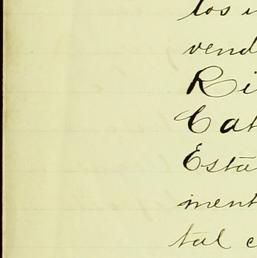 los i
vend
Ri
Cat
Esta
ment
tal c